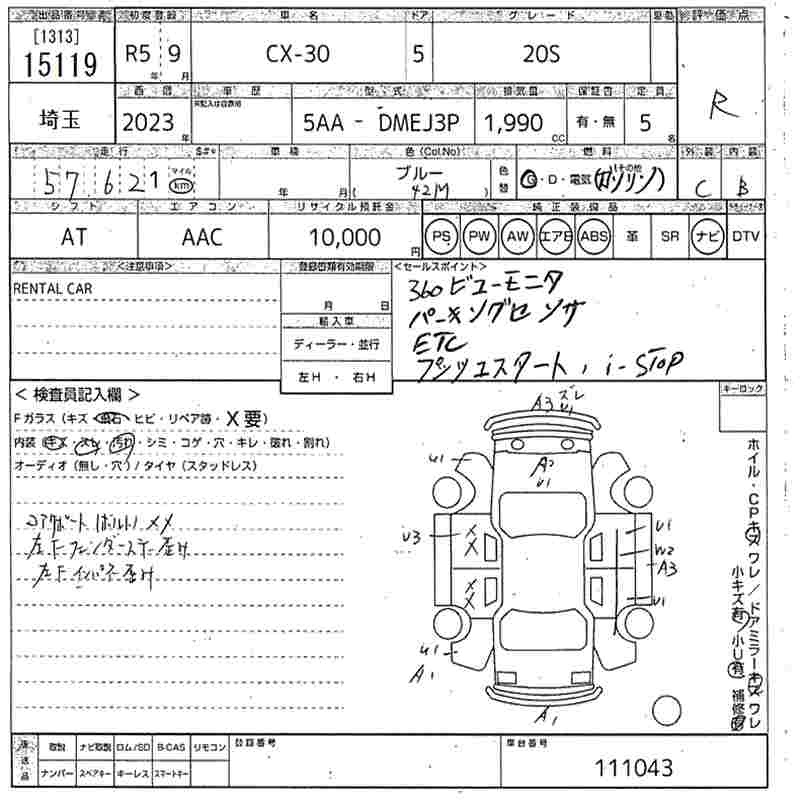 出品番号 初度登録 車名 ドア グレード 車歴 評価点
[1313]
15119 R5 9 CX-30 5 20S R
年 月
車歴 型式 排気量 保証書 定員
埼玉 2023 年 5AA - DMEJ3P 1,990 CC 有・無 5 名
走行 車検 色(Col.No) 燃料 外装 内装
57,621 マイル km 年 月 ブルー 色替 G・D・電気(ガソリン) その他 C B
( 42M )
シフト エアコン リサイクル預託金 純正装備品
AT AAC 10,000 円 PS PW AW エアB ABS 革 SR ナビ DTV
<注意事項> 登録書類有効期限 <セールスポイント>
RENTAL CAR 360ビューモニタ
月 日 パーキングセンサ
輸入車 ETC
ディーラー・並行 プッシュスタート, i-STOP
左H ・ 右H
< 検査員記入欄 > キーロック
Fガラス (キズ 飛石 ヒビ・リペア跡・X要)
内装 (キズ・スレ・汚れ・シミ・コゲ・穴・キレ・破れ・割れ)
オーディオ (無し・穴) / タイヤ (スタッドレス)
コアサポート(ボルト)××
左Fフェンダーステー歪み
左Fインパネ歪み
A3 ズレ U1
U1 A2 U1
U3 X X U1
W2
A3
X X U1
U1
A1 A1
ホイル・CPキズワレ/ドアミラーキズワレ
小キズ有 小U有 補修跡
返送品 取説 ナビ取説 ロム/SD B-CAS リモコン 登録番号 車台番号
ナンバー スペアキー キーレス スマートキー 111043